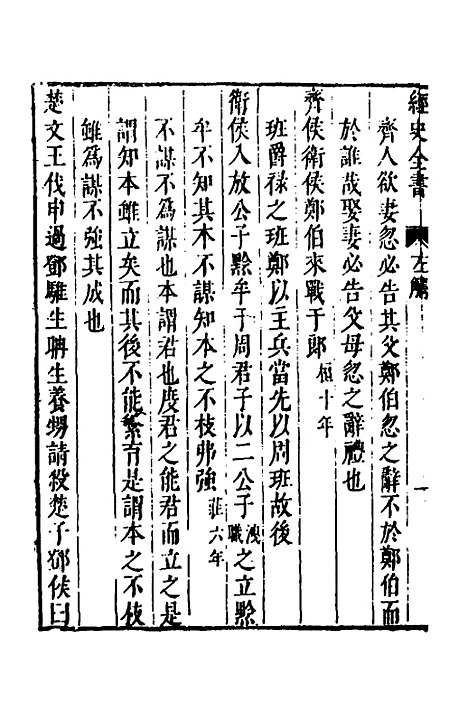 經史全書 左觿 一
齊人欲妻忽必告其父鄭伯忽之辭不於鄭伯而
於誰哉娶妻必告父母忽之辭禮也
齊侯衛侯鄭伯來戰于郎 桓十年
班爵祿之班鄭以主兵當先以周班故後
衛侯入放公子黔牟于周君子以二公子洩職之立黔
牟不知其本不謀知本之不枝弗強 莊六年
不謀不爲謀也本謂君也度君之能君而立之是
謂知本雖立矣而其後不能繁育是謂本之不枝
雖爲謀不強其成也
楚文王伐申過鄧騅生聃生養甥請殺楚子鄧侯曰